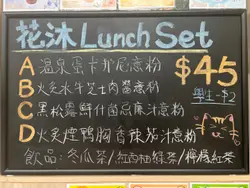 花沐 Lunch Set
A 溫泉蛋卡邦尼意粉
B 火炙水牛芝士肉醬意粉
C 黑松露鮮什菌忌廉汁意粉
D 火炙煙鴨胸香辣茄汁意粉
$45
學生 -$2
飲品：冬瓜茶／紅西柚綠茶／檸檬紅茶